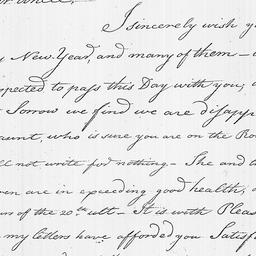 I sincerely wish yo
New Year, and many of them –
pected to pass this Day with you,
Sorrow we find we are disapp
aunt, who is sure you are on the Ro
ll not write for nothing – She and
ren are in exceeding good health,
of the 20th ult – It is with Pleas
my letters have afforded you Satisf